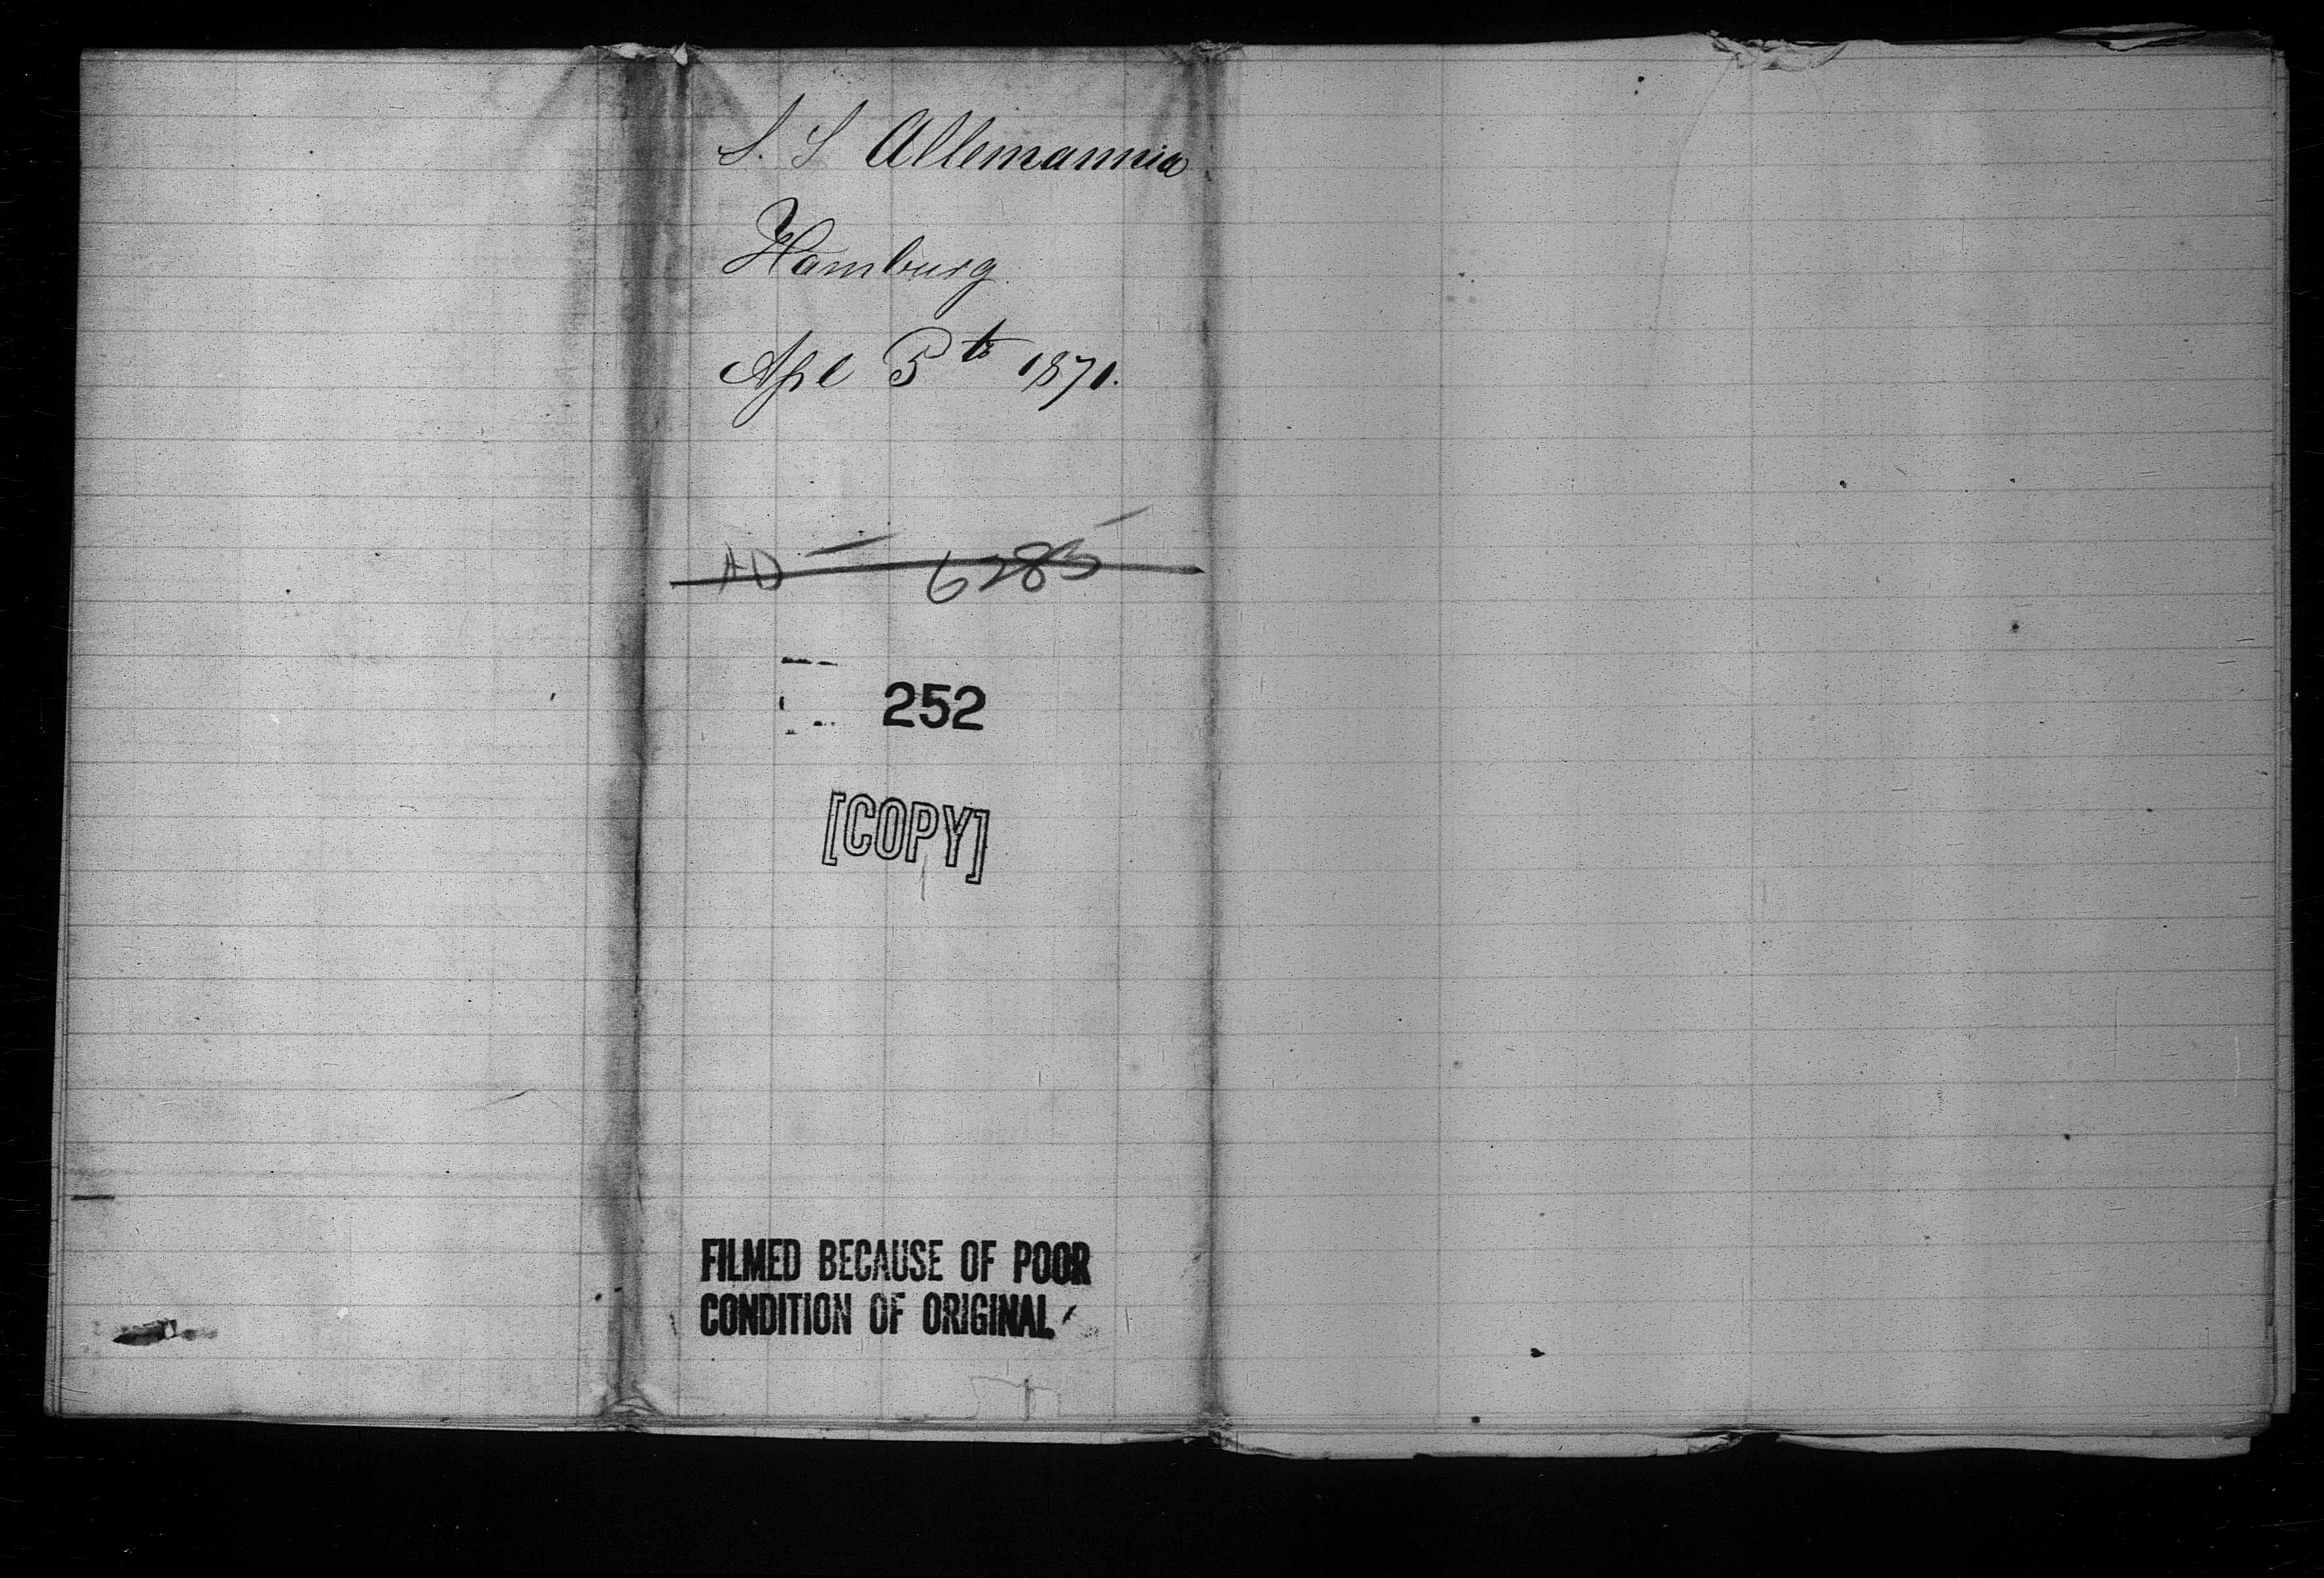 S. S Allemannia
Hamburg
Apl 5th 1871.
AD 6285
252
[COPY]
FILMED BECAUSE OF POOR
CONDITION OF ORIGINAL